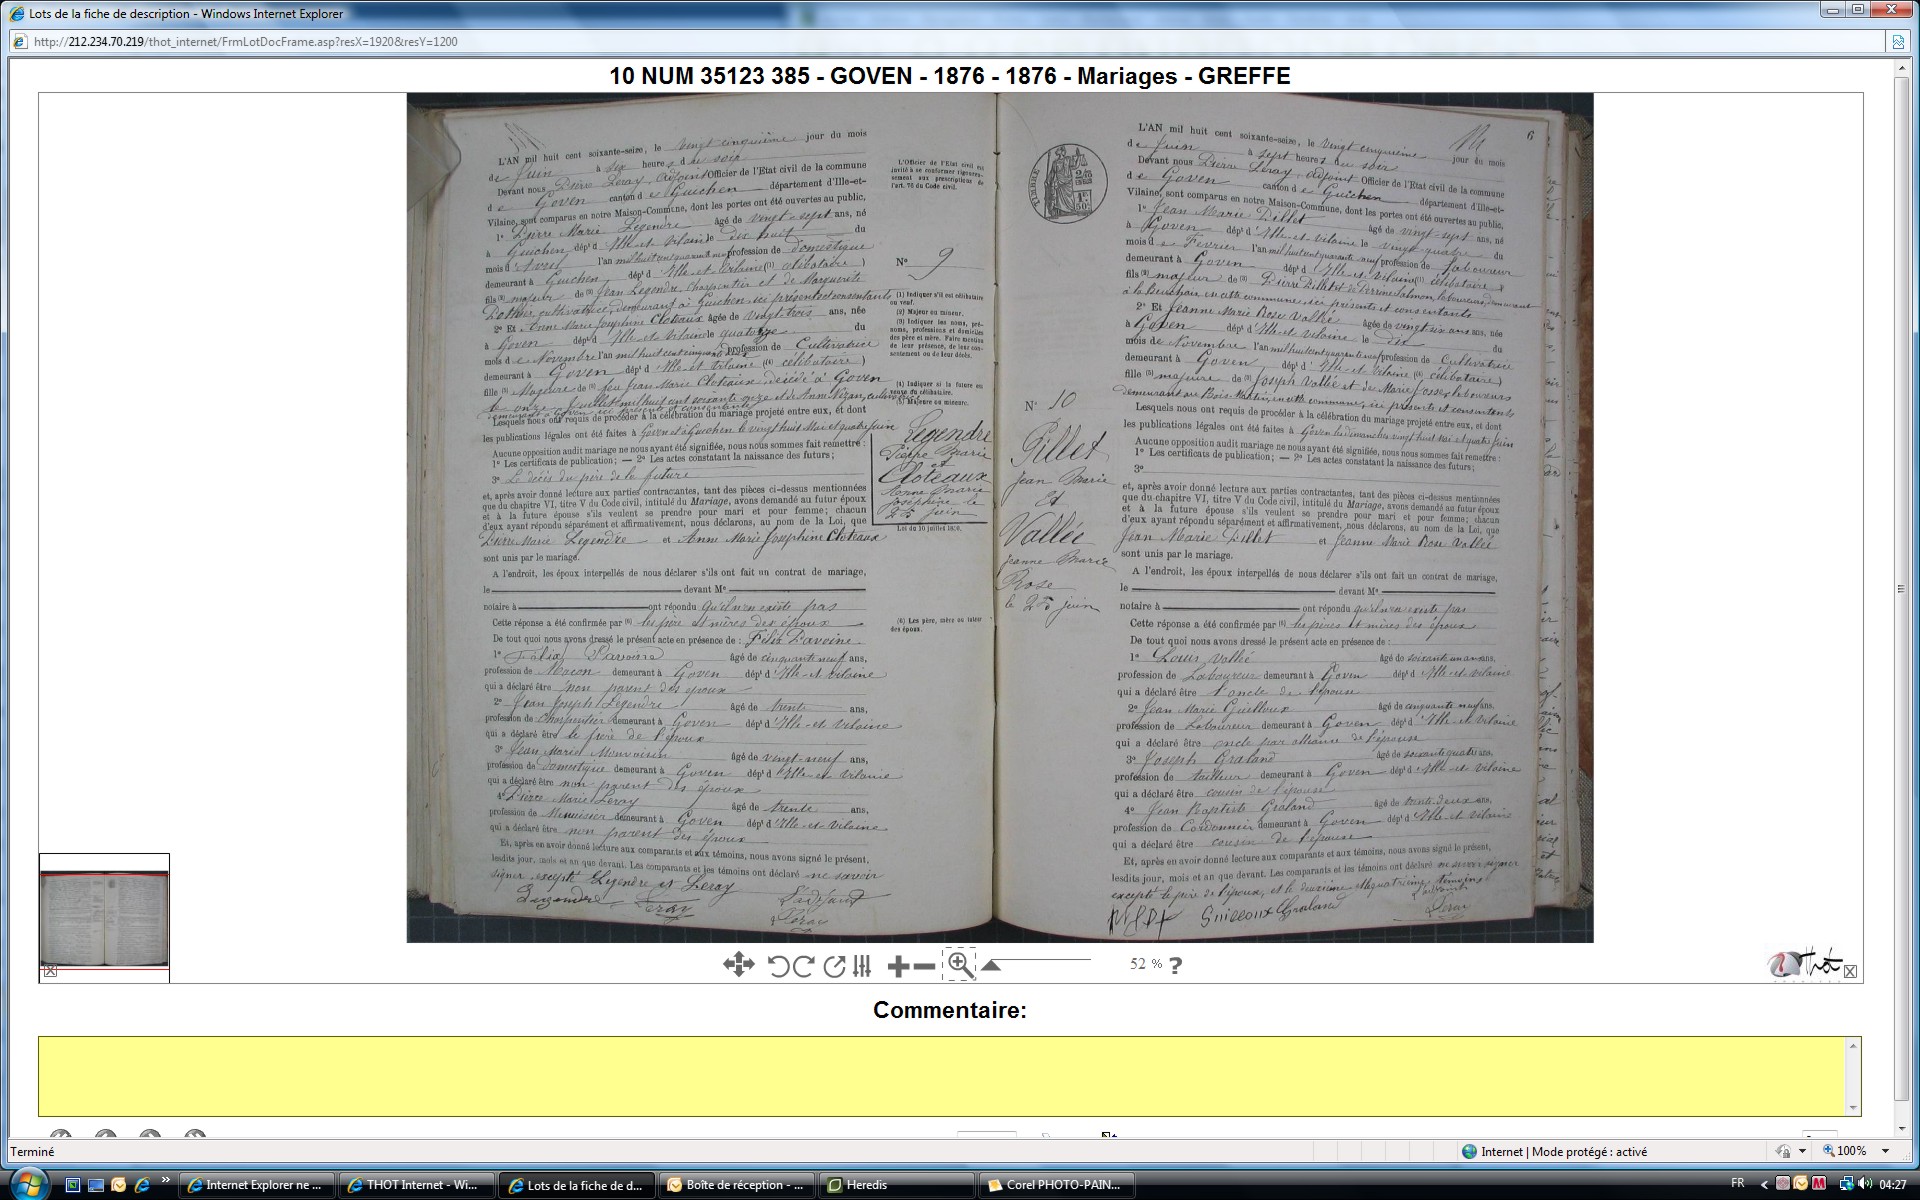 Lots de la fiche de description - Windows Internet Explorer
http://212.234.70.219/thot_internet/FrmLotDocFrame.asp?resX=1920&resY=1200
10 NUM 35123 385 - GOVEN - 1876 - 1876 - Mariages - GREFFE
L'AN mil huit cent soixante-seize, le vingt cinquième jour du mois
de Juin à six heures du soir
Devant nous Pierre Leray, adjoint Officier de l'Etat civil de la commune
de Goven canton de Guichen département d'Ille-et-
Vilaine, sont comparus en notre Maison-Commune, dont les portes ont été ouvertes au public,
1º Pierre Marie Legendre âgé de vingt-sept ans, né
à Guichen dépt d'Ille-et-Vilaine le dix huit du
mois d'Avril l'an mil huit cent quarante neuf profession de domestique
demeurant à Guichen dépt d'Ille et Vilaine (1) célibataire )
fils (2) majeur de (3) Jean Legendre, charpentier et de Marguerite
cultivatrice, demeurant à Guichen, ici présents et consentants
2º Et Anne Marie Joséphine Cloteaux âgée de vingt-trois ans, née
à Goven dépt d'Ille-et-Vilaine le quatorze du
mois de Novembre l'an mil huit cent cinquante profession de Cultivatrice
demeurant à Goven dépt d'Ille et Vilaine (4) célibataire )
fille (5) Majeure de (3) feu Jean Marie Cloteaux, décédé à Goven
le onze Juillet mil huit cent soixante onze et de Anne Nizan, cultivatrice
demeurant à Goven, ici présente et consentante
Lesquels nous ont requis de procéder à la célébration du mariage projeté entre eux, et dont
les publications légales ont été faites à Goven et à Guichen le vingt huit Mai et quatre Juin
Aucune opposition audit mariage ne nous ayant été signifiée, nous nous sommes fait remettre :
1º Les certificats de publication; — 2º Les actes constatant la naissance des futurs;
3º Le décès du père de la future
et, après avoir donné lecture aux parties contractantes, tant des pièces ci-dessus mentionnées
que du chapitre VI, titre V du Code civil, intitulé du Mariage, avons demandé au futur époux
et à la future épouse s'ils veulent se prendre pour mari et pour femme; chacun
d'eux ayant répondu séparément et affirmativement, nous déclarons, au nom de la Loi, que
Pierre Marie Legendre et Anne Marie Joséphine Cloteaux
sont unis par le mariage.
A l'endroit, les époux interpellés de nous déclarer s'ils ont fait un contrat de mariage,
le devant Me
notaire à ont répondu qu'il n'en existe pas
Cette réponse a été confirmée par (6) les père et mères des époux
De tout quoi nous avons dressé le présent acte en présence de : Félix Pavoine
1º Félix Pavoine âgé de cinquante neuf ans,
profession de Maçon demeurant à Goven dépt d'Ille-et-Vilaine
qui a déclaré être non parent des époux
2º Jean Joseph Legendre âgé de trente ans,
profession de charpentier demeurant à Goven dépt d'Ille-et-Vilaine
qui a déclaré être le frère de l'époux
3º Jean Marie âgé de vingt-neuf ans,
profession de Domestique demeurant à Goven dépt d'Ille-et-Vilaine
qui a déclaré être non parent des époux
4º Pierre Marie Leray âgé de trente ans,
profession de Menuisier demeurant à Goven dépt d'Ille-et-Vilaine
qui a déclaré être non parent des époux
Et, après en avoir donné lecture aux comparants et aux témoins, nous avons signé le présent,
lesdits jour, mois et an que devant. Les comparants et les témoins ont déclaré ne savoir
signer excepté Legendre et Leray
Legendre Leray L'adjoint
Leray
L'Officier de l'Etat civil est
invité à se conformer rigoureu-
sement aux prescriptions de
l'art. 76 du Code civil.
Nº 9
(1) Indiquer s'il est célibataire
ou veuf.
(2) Majeur ou mineur.
(3) Indiquer les noms, pré-
noms, professions et domiciles
des père et mère. Faire mention
de leur présence, de leur con-
sentement ou de leur décès.
(4) Indiquer si la future est
veuve ou célibataire.
(5) Majeure ou mineure.
Legendre
Pierre Marie
et
Cloteaux
Anne Marie
Joséphine le
25 juin
Loi du 10 juillet 1850.
(6) Les père, mère ou tuteur
des époux.
TIMBRE
6
L'AN mil huit cent soixante-seize, le vingt cinquième jour du mois
de Juin à sept heures du soir
Devant nous Pierre Leray, adjoint Officier de l'Etat civil de la commune
de Goven canton de Guichen département d'Ille-et-
Vilaine, sont comparus en notre Maison-Commune, dont les portes ont été ouvertes au public,
1º Jean Marie Pillet âgé de vingt-sept ans, né
à Goven dépt d'Ille-et-Vilaine le vingt-quatre du
mois de Février l'an mil huit cent quarante neuf profession de Laboureur
demeurant à Goven dépt d'Ille-et-Vilaine (1) célibataire )
fils (2) majeur de (3) Pierre Pillet et de Perrine Salmon, laboureurs, demeurant
en cette commune, ici présents et consentants
2º Et Jeanne Marie Rose Vallée âgée de vingt six ans, née
à Goven dépt d'Ille-et-Vilaine le dix du
mois de Novembre l'an mil huit cent quarante neuf profession de Cultivatrice
demeurant à Goven dépt d'Ille-et-Vilaine (4) célibataire )
fille (5) majeure de (3) Joseph Vallée et de Marie Josse, laboureurs
demeurant au Bois Martin, en cette commune, ici présents et consentants
Lesquels nous ont requis de procéder à la célébration du mariage projeté entre eux, et dont
les publications légales ont été faites à Goven les dimanches vingt huit mai et quatre Juin
Aucune opposition audit mariage ne nous ayant été signifiée, nous nous sommes fait remettre :
1º Les certificats de publication; — 2º Les actes constatant la naissance des futurs;
3º
et, après avoir donné lecture aux parties contractantes, tant des pièces ci-dessus mentionnées
que du chapitre VI, titre V du Code civil, intitulé du Mariage, avons demandé au futur époux
et à la future épouse s'ils veulent se prendre pour mari et pour femme; chacun
d'eux ayant répondu séparément et affirmativement, nous déclarons, au nom de la Loi, que
Jean Marie Pillet et Jeanne Marie Rose Vallée
sont unis par le mariage.
A l'endroit, les époux interpellés de nous déclarer s'ils ont fait un contrat de mariage,
le devant Me
notaire à ont répondu qu'il n'en existe pas
Cette réponse a été confirmée par (6) les pères et mères des époux
De tout quoi nous avons dressé le présent acte en présence de :
1º Louis Vallée âgé de soixante un ans,
profession de Laboureur demeurant à Goven dépt d'Ille-et-Vilaine
qui a déclaré être l'oncle de l'épouse
2º Jean Marie Guilloux âgé de cinquante neuf ans,
profession de Laboureur demeurant à Goven dépt d'Ille-et-Vilaine
qui a déclaré être oncle par alliance de l'épouse
3º Joseph Graland âgé de soixante quatre ans,
profession de tailleur demeurant à Goven dépt d'Ille-et-Vilaine
qui a déclaré être cousin de l'épouse
4º Jean Baptiste Graland âgé de trente deux ans,
profession de Cordonnier demeurant à Goven dépt d'Ille-et-Vilaine
qui a déclaré être cousin de l'épouse
Et, après en avoir donné lecture aux comparants et aux témoins, nous avons signé le présent,
lesdits jour, mois et an que devant. Les comparants et les témoins ont déclaré ne savoir signer
excepté le père de l'époux, et le deuxième et quatrième témoins
L'adjoint
Pillet Guilloux Graland Leray
Nº 10
Pillet
Jean Marie
Et
Vallée
Jeanne Marie
Rose
le 25 juin
52 % ?
Thot
Commentaire:
Terminé
Internet | Mode protégé : activé
100%
Internet Explorer ne ...
THOT Internet - Wi...
Lots de la fiche de d...
Boîte de réception - ...
Heredis
Corel PHOTO-PAIN...
FR
04:27